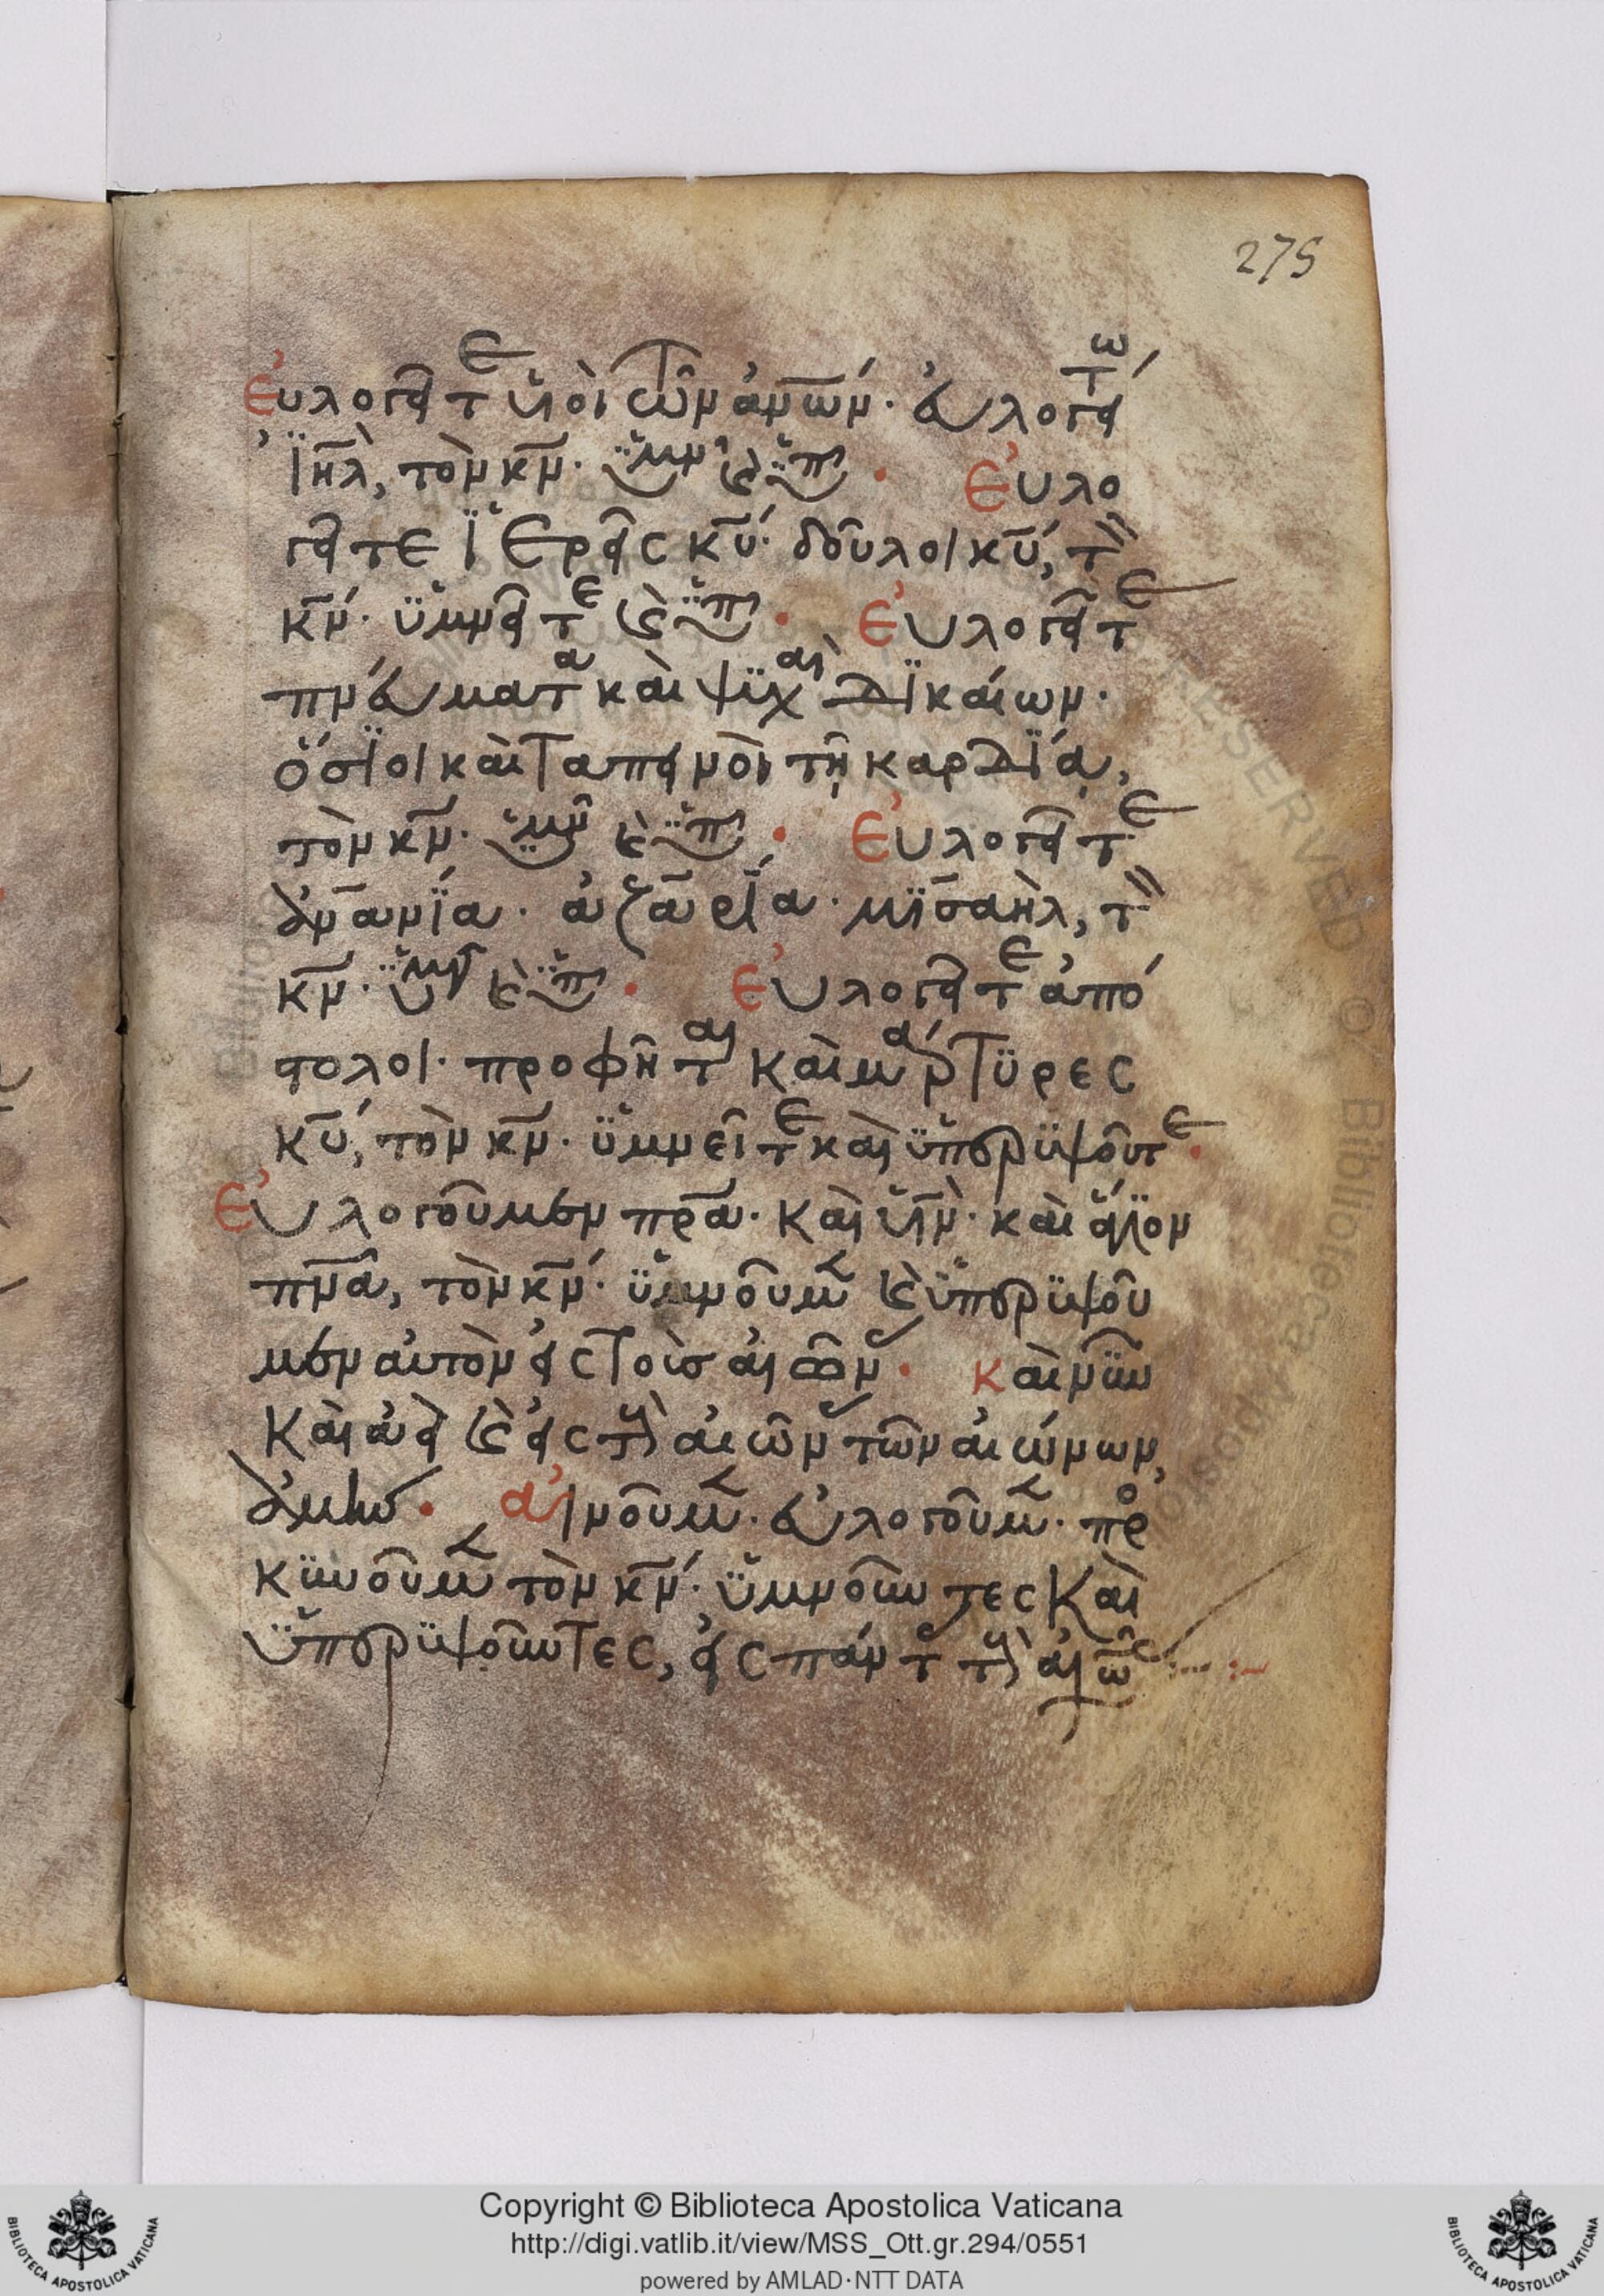 275
Εὐλογεῖτε υἱοὶ τῶν ἀν̅ω̅ν· εὐλογείτω
Ἰη̅λ, τὸν κ̅ν· ὑμν καὶ ὑπ· Εὐλο
γεῖτε ἱερεῖς κ̅υ· δοῦλοι κ̅υ, τ
κ̅ν· ὑμνεῖτε καὶ ὑπ· Εὐλογεῖτε
πνεύματα καὶ ψυχαὶ δικαίων·
ὅσιοι καὶ ταπεινοὶ τῇ καρδίᾳ,
τὸν κ̅ν· ὑμν καὶ ὑπ· Εὐλογεῖτε
ἀνανία· ἀζαρία· μισαήλ, τ
κ̅ν· ὑμν καὶ ὑπ· Εὐλογεῖτε ἀπό
στολοι· προφῆται καὶ μάρτυρες
κ̅υ, τὸν κ̅ν· ὑμνεῖτε καὶ ὑπερυψοῦτε·
Εὐλογοῦμεν π̅ρ̅α· καὶ υ̅ν· καὶ ἅγιον
π̅ν̅α, τὸν κ̅ν· ὑμνοῦμεν καὶ ὑπερυψοῦ
μεν αὐτὸν εἰς τοὺς αἰῶν· καὶ νῦν
καὶ ἀεὶ καὶ εἰς τοὺς αἰῶνας τῶν αἰώνων,
ἀμήν· αἰνοῦμεν· εὐλογοῦμεν· προ
κυνοῦμεν τὸν κ̅ν· ὑμνοῦντες καὶ
ὑπερυψοῦντες, εἰς πάντας τοὺς αἰῶ
Copyright © Biblioteca Apostolica Vaticana
http://digi.vatlib.it/view/MSS_Ott.gr.294/0551
powered by AMLAD·NTT DATA
BIBLIOTECA APOSTOLICA VATICANA
BIBLIOTECA APOSTOLICA VATICANA